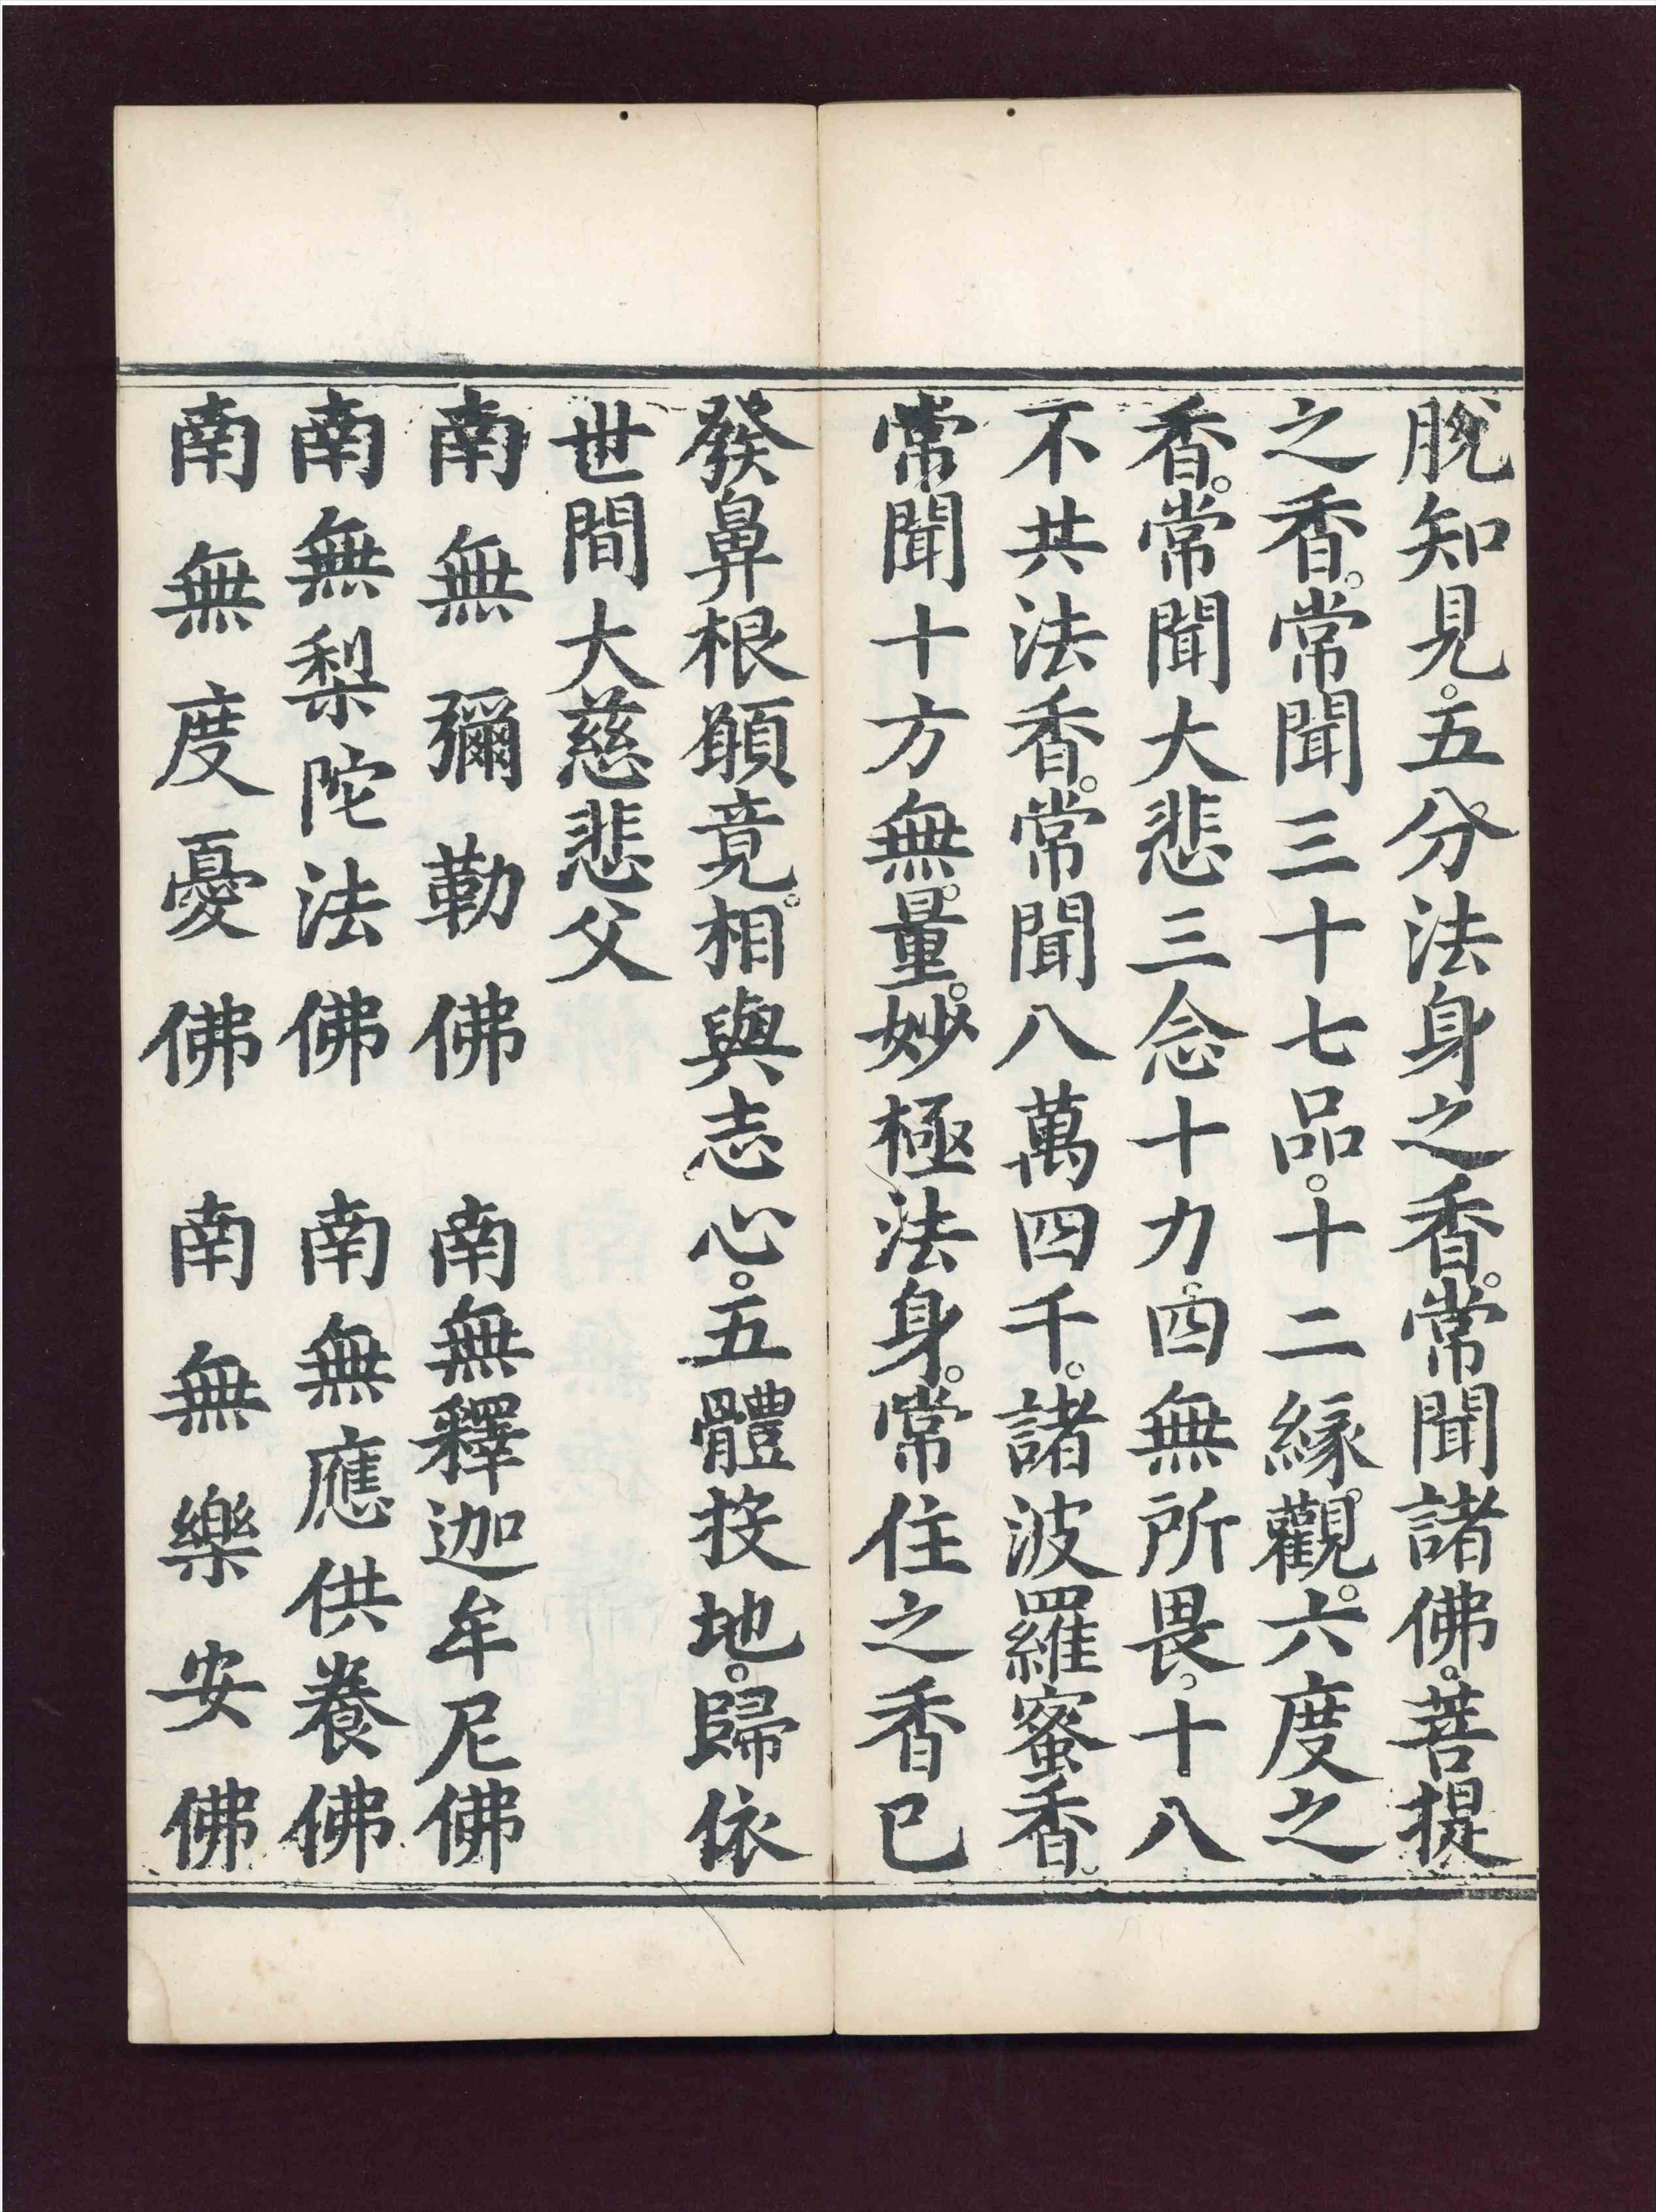 脫知見。五分法身之香。常聞諸佛。菩提
之香。常聞三十七品。十二緣觀。六度之
香。常聞大悲三念十力。四無所畏。十八
不共法香。常聞八萬四千。諸波羅蜜香。
常聞十方無量。妙極法身。常住之香已
發鼻根願竟。相與志心。五體投地。歸依
世間大慈悲父
南無彌勒佛　南無釋迦牟尼佛
南無梨陀法佛　南無應供養佛
南無度憂佛　南無樂安佛